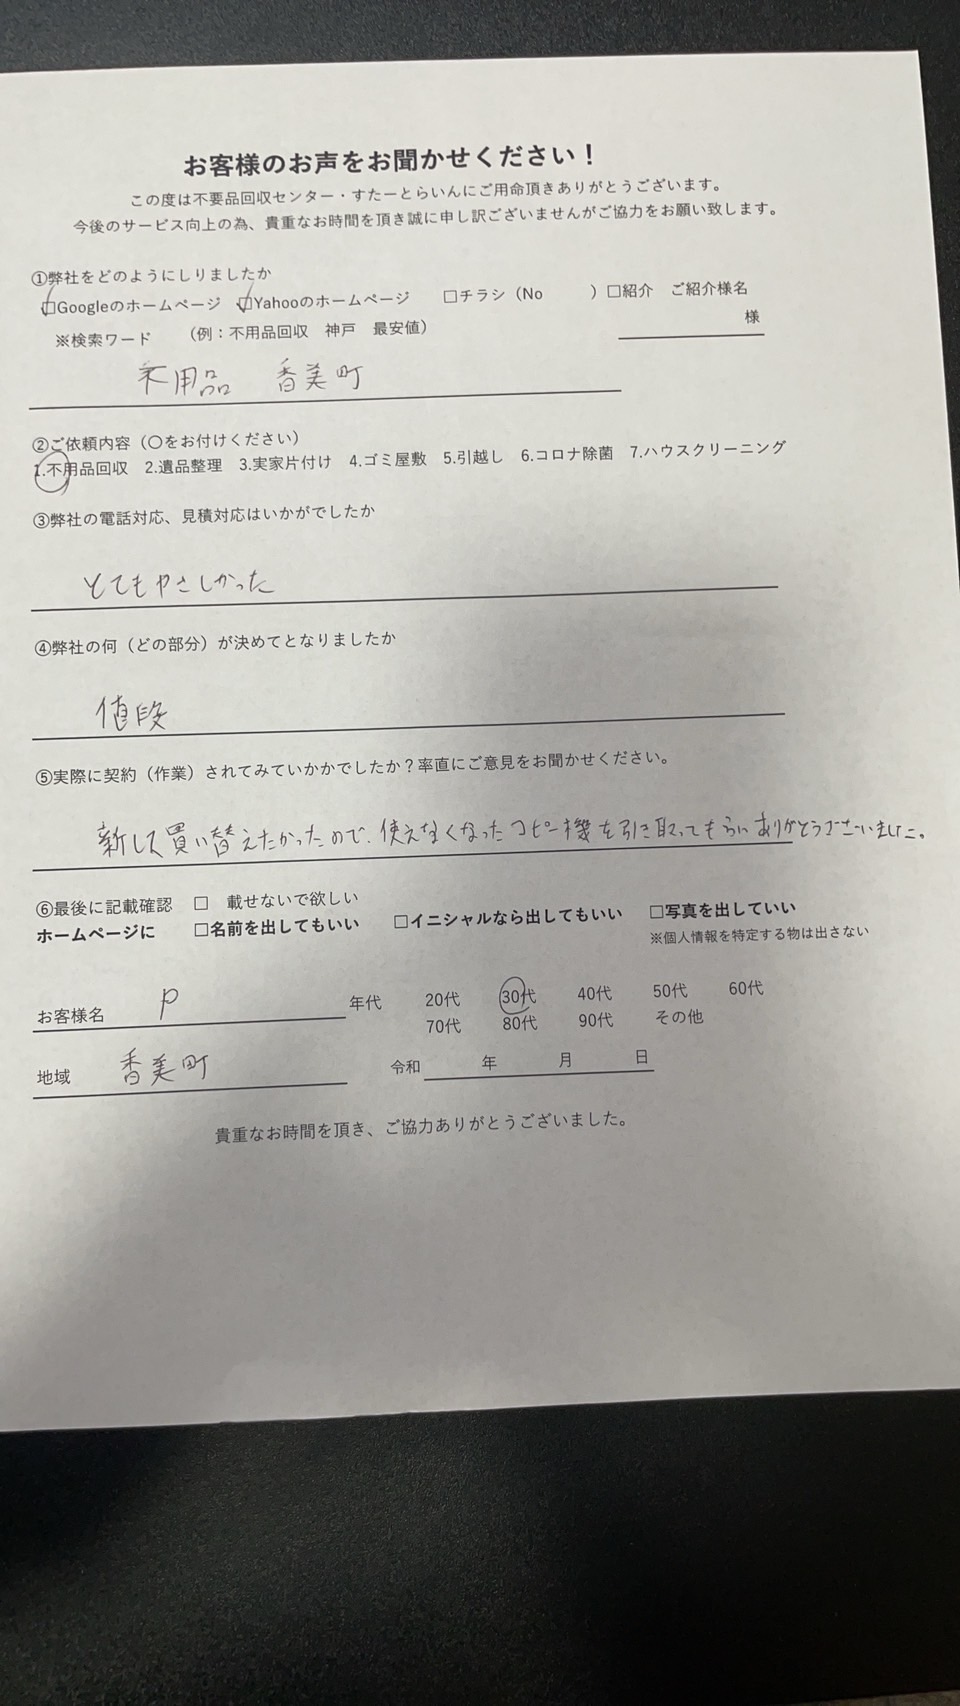 お客様のお声をお聞かせください！
この度は不要品回収センター・すたーとらいんにご用命頂きありがとうございます。
今後のサービス向上の為、貴重なお時間を頂き誠に申し訳ございませんがご協力をお願い致します。
①弊社をどのようにしりましたか
☑Googleのホームページ ☑Yahooのホームページ □チラシ（No ）□紹介 ご紹介様名
※検索ワード （例：不用品回収 神戸 最安値） 様
不用品 香美町
②ご依頼内容（〇をお付けください）
1.不用品回収 2.遺品整理 3.実家片付け 4.ゴミ屋敷 5.引越し 6.コロナ除菌 7.ハウスクリーニング
③弊社の電話対応、見積対応はいかがでしたか
とてもやさしかった
④弊社の何（どの部分）が決めてとなりましたか
値段
⑤実際に契約（作業）されてみていかかでしたか？率直にご意見をお聞かせください。
新しく買い替えたかったので、使えなくなったコピー機を引き取ってもらいありがとうございました。
⑥最後に記載確認 □ 載せないで欲しい
ホームページに □名前を出してもいい □イニシャルなら出してもいい □写真を出していい
※個人情報を特定する物は出さない
お客様名 P 年代 20代 30代 40代 50代 60代
70代 80代 90代 その他
地域 香美町 令和 年 月 日
貴重なお時間を頂き、ご協力ありがとうございました。